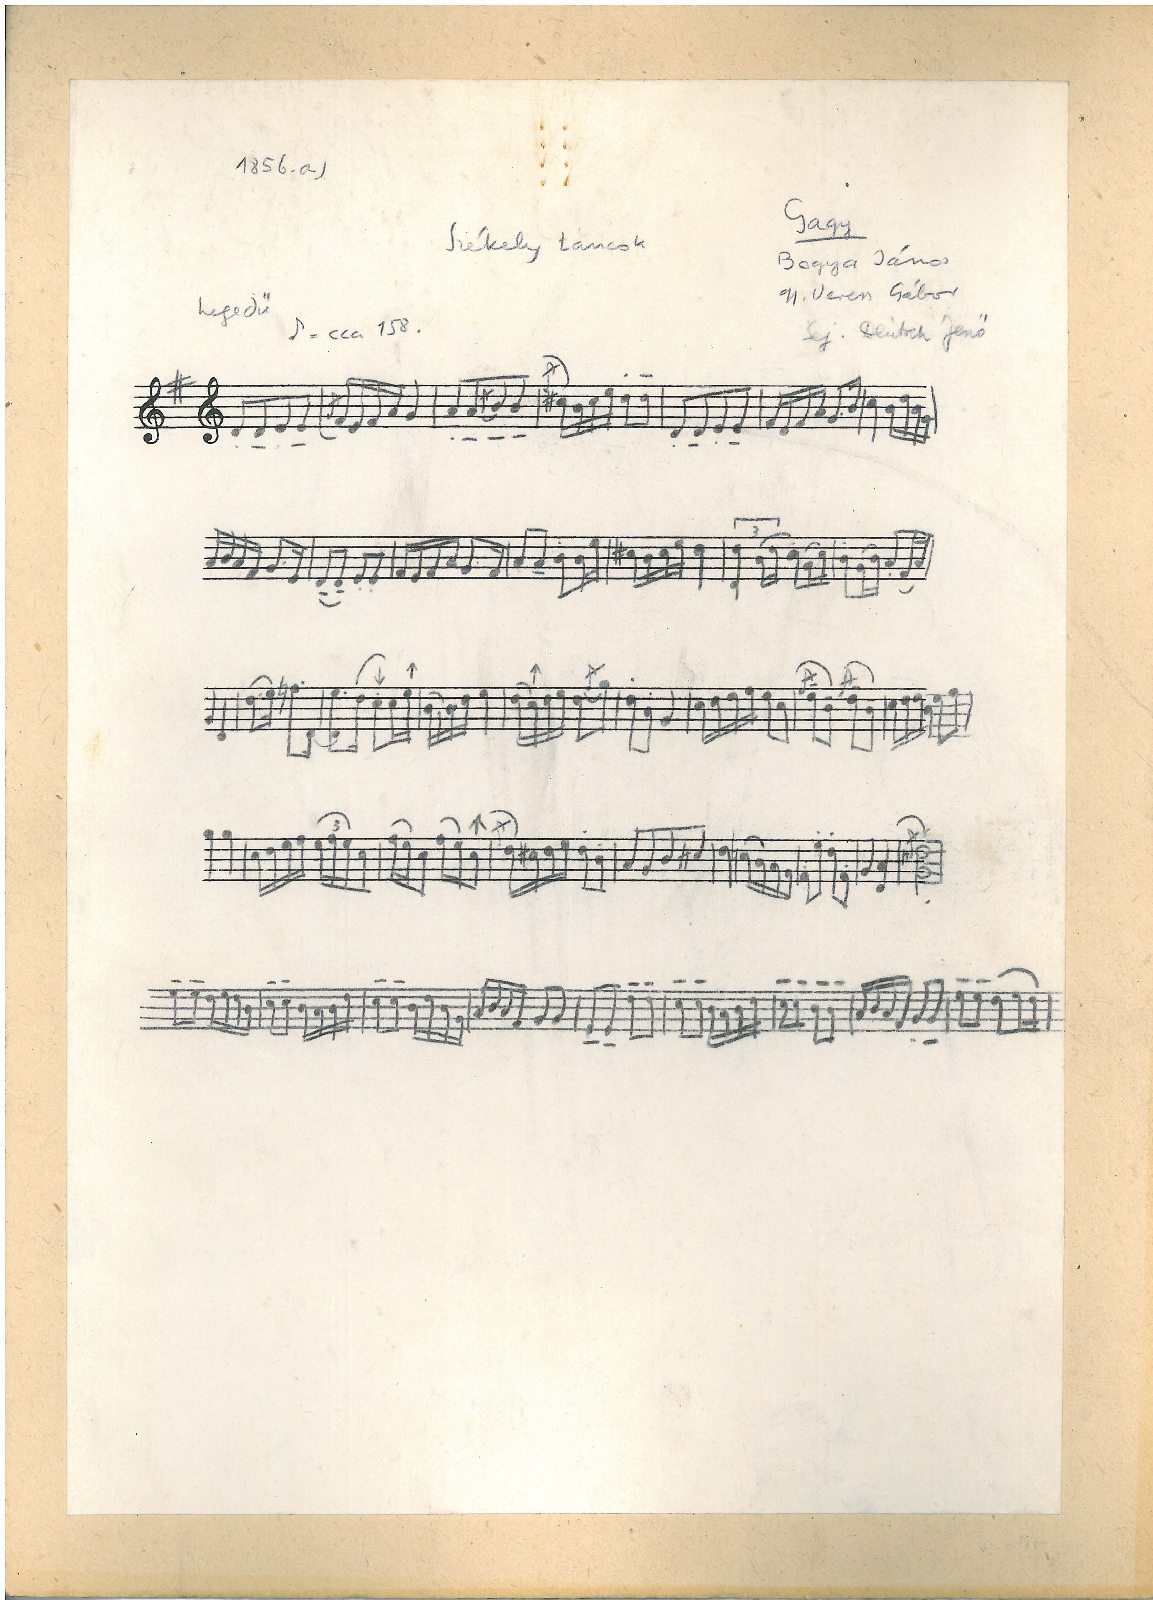 1856.a)
Székely táncok
Gagy
Bogya János
gy. Veress Gábor
lej. Deutsch Jenő
hegedű
♪ = cca 158.
3
3